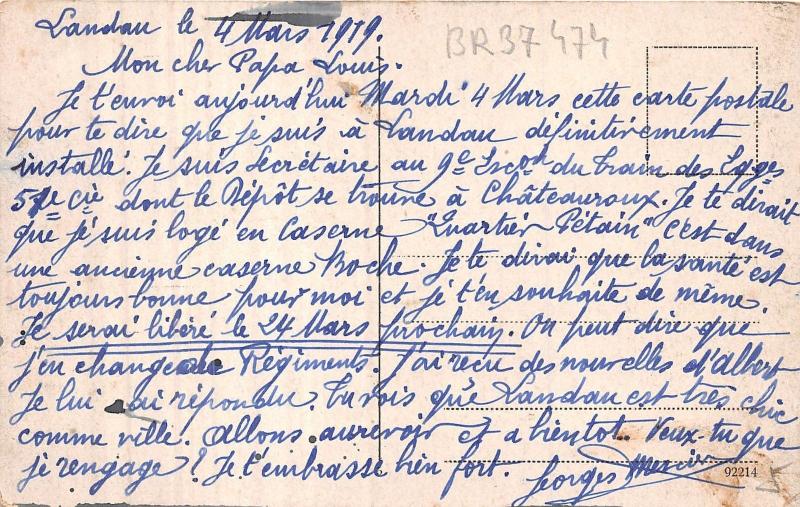 Landau le 4 Mars 1919.
BR37 474
Mon cher Papa Louis.
Je t'envoi aujourd'hui Mardi 4 Mars cette carte postale
pour te dire que je suis à Landau définitivement
installé. Je suis Secrétaire au 9e Escon du Train des Eqges
51e cie dont le Dépôt se trouve à Châteauroux. Je te dirait
que je suis logé en Caserne "Quartier Pétain" C'est dans
une ancienne caserne Boche. Je te dirai que la santé est
toujours bonne pour moi et je t'en souhaite de même.
Je serai libéré le 24 Mars prochain. On peut dire que
j'en change de Régiments. J'ai reçu des nouvelles d'Albert
Je lui ai répondu. Tu vois que Landau est très chic
comme ville. Allons au revoir et a bientot. Veux-tu que
je rengage? Je t'embrasse bien fort. Georges Mercier
92214